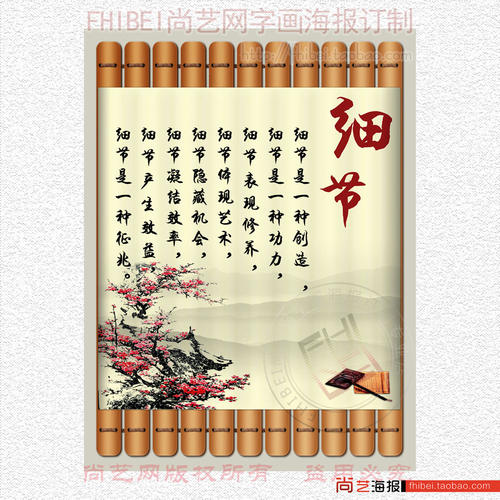 FHIBEI尚艺网字画海报订制
fhibei.taobao.com
细节
细节是一种创造，
细节是一种功力，
细节表现修养，
细节体现艺术，
细节隐藏机会，
细节凝结效率，
细节产生效蓝
细节是一种征兆。
FHI
FHIBEI
尚艺网版权所有 盗用必究
尚艺海报 fhibei.taobao.com